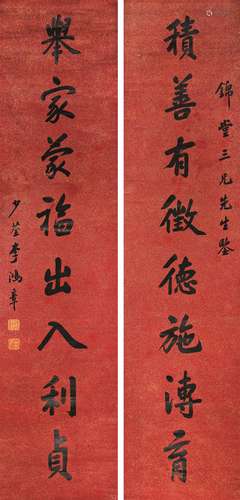 錦堂三兄先生鑒
積善有徵德施溥育
舉家蒙福出入利貞
少荃李鴻章